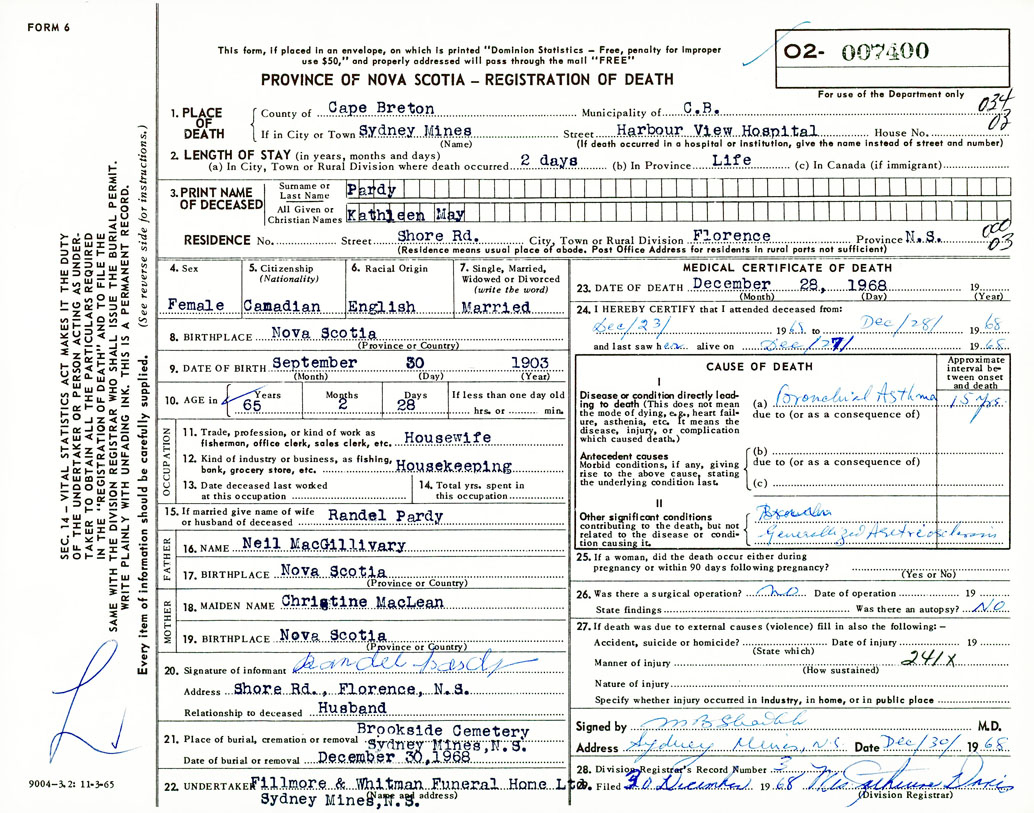 FORM 6
This form, if placed in an envelope, on which is printed "Dominion Statistics – Free, penalty for improper
use $50," and properly addressed will pass through the mail "FREE"
PROVINCE OF NOVA SCOTIA – REGISTRATION OF DEATH
O2- 007400
For use of the Department only
034
03
1. PLACE OF DEATH
County of Cape Breton Municipality of C.B.
If in City or Town Sydney Mines Street Harbour View Hospital House No.
(Name) (If death occurred in a hospital or institution, give the name instead of street and number)
2. LENGTH OF STAY (in years, months and days)
(a) In City, Town or Rural Division where death occurred 2 days (b) In Province Life (c) In Canada (if immigrant)
3. PRINT NAME OF DECEASED
Surname or Last Name Pardy
All Given or Christian Names Kathleen May
RESIDENCE No. Street Shore Rd. City, Town or Rural Division Florence Province N.S.
(Residence means usual place of abode. Post Office Address for residents in rural parts not sufficient)
000
03
4. Sex
Female
5. Citizenship
(Nationality)
Canadian
6. Racial Origin
English
7. Single, Married,
Widowed or Divorced
(write the word)
Married
8. BIRTHPLACE Nova Scotia
(Province or Country)
9. DATE OF BIRTH September 30 1903
(Month) (Day) (Year)
10. AGE in Years Months Days If less than one day old
65 2 28 hrs. or min.
OCCUPATION
11. Trade, profession, or kind of work as
fisherman, office clerk, sales clerk, etc. Housewife
12. Kind of industry or business, as fishing,
bank, grocery store, etc. Housekeeping
13. Date deceased last worked
at this occupation
14. Total yrs. spent in
this occupation
15. If married give name of wife
or husband of deceased Randel Pardy
FATHER
16. NAME Neil MacGillivary
17. BIRTHPLACE Nova Scotia
(Province or Country)
MOTHER
18. MAIDEN NAME Christine MacLean
19. BIRTHPLACE Nova Scotia
(Province or Country)
20. Signature of informant Randel Pardy
Address Shore Rd., Florence, N.S.
Relationship to deceased Husband
21. Place of burial, cremation or removal Brookside Cemetery
Sydney Mines,N.S.
Date of burial or removal December 30,1968
22. UNDERTAKER Fillmore & Whitman Funeral Home Ltd.
(Name and address)
Sydney Mines,N.S.
MEDICAL CERTIFICATE OF DEATH
23. DATE OF DEATH December 28, 1968 19
(Month) (Day) (Year)
24. I HEREBY CERTIFY that I attended deceased from:
Dec/23/ 1968 to Dec/28/ 1968
and last saw her alive on Dec/27/ 1968
CAUSE OF DEATH
Approximate
interval be-
tween onset
and death
I
Disease or condition directly lead-
ing to death (This does not mean
the mode of dying, e.g., heart fail-
ure, asthenia, etc. It means the
disease, injury, or complication
which caused death.)
(a) Bronchial Asthma 15 yrs.
due to (or as a consequence of)
Antecedent causes
Morbid conditions, if any, giving
rise to the above cause, stating
the underlying condition last.
(b)
due to (or as a consequence of)
(c)
II
Other significant conditions
contributing to the death, but not
related to the disease or condi-
tion causing it.
Generalized
25. If a woman, did the death occur either during
pregnancy or within 90 days following pregnancy?
(Yes or No)
26. Was there a surgical operation? NO Date of operation 19
State findings Was there an autopsy? NO
27. If death was due to external causes (violence) fill in also the following: –
Accident, suicide or homicide? Date of injury 19
(State which)
Manner of injury 241X
(How sustained)
Nature of injury
Specify whether injury occurred in industry, in home, or in public place
Signed by M.D.
Address Sydney Mines, N.S. Date Dec/30/ 1968
28. Division Registrar's Record Number 3
29. Filed 30 December 1968
(Division Registrar)
SEC. 14 – VITAL STATISTICS ACT MAKES IT THE DUTY
OF THE UNDERTAKER OR PERSON ACTING AS UNDER-
TAKER TO OBTAIN ALL THE PARTICULARS REQUIRED
IN THE "REGISTRATION OF DEATH" AND TO FILE THE
SAME WITH THE DIVISION REGISTRAR WHO SHALL ISSUE THE BURIAL PERMIT.
WRITE PLAINLY WITH UNFADING INK. THIS IS A PERMANENT RECORD.
Every item of information should be carefully supplied. (See reverse side for instructions.)
9004–3.2: 11-3-65